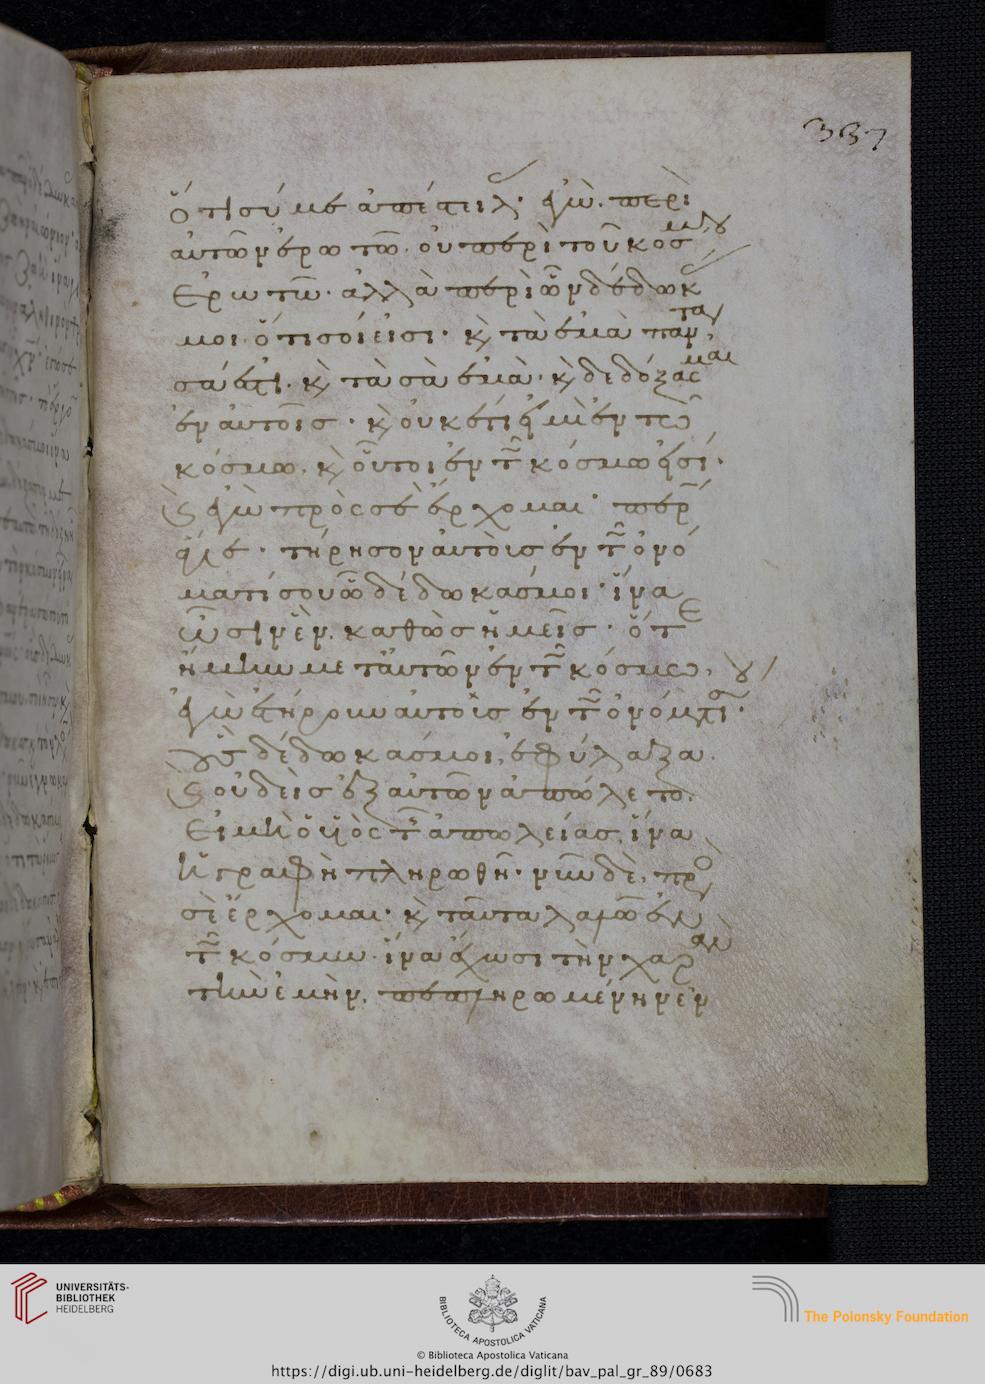 337
ὅτι σύ με ἀπέστειλας· ἐγὼ περὶ
αὐτῶν ἐρωτῶ· οὐ περὶ τοῦ κόσμου
ἐρωτῶ· ἀλλὰ περὶ ὧν δέδωκάς
μοι· ὅτι σοί εἰσι· κ̀ τὰ ἐμὰ πάντα
σά ἐστι· κ̀ τὰ σὰ ἐμὰ· κ̀ δεδόξασμαι
ἐν αὐτοῖς· κ̀ οὐκέτι εἰμὶ ἐν τῶ
κόσμω· κ̀ οὗτοι ἐν τῶ κόσμω εἰσί·
κ̀ ἐγὼ πρὸς σὲ ἔρχομαι· περ
ἅγιε· τήρησον αὐτοὺς ἐν τῶ ὀνό
ματί σου ὧ δέδωκάς μοι· ἵνα
ὦσιν ἓν, καθὼς ἡμεῖς· ὅτε
ἤμην μετ' αὐτῶν ἐν τῶ κόσμω,
ἐγὼ ἐτήρουν αὐτοὺς ἐν τῶ ὀνόματί σου·
οὓς δέδωκάς μοι, ἐφύλαξα·
κ̀ οὐδεὶς ἐξ αὐτῶν ἀπώλετο.
εἰ μὴ ὁ υἱὸς τῆς ἀπωλείας, ἵνα
ἡ γραφὴ πληρωθῆ· νῦν δὲ, πρὸς
σὲ ἔρχομαι· κ̀ ταῦτα λαλῶ ἐν
τῶ κόσμω· ἵνα ἔχωσι τὴν χαρὰν
τὴν ἐμὴν, πεπληρωμένην ἐν
UNIVERSITÄTS-
BIBLIOTHEK
HEIDELBERG
BIBLIOTECA APOSTOLICA VATICANA
The Polonsky Foundation
© Biblioteca Apostolica Vaticana
https://digi.ub.uni-heidelberg.de/diglit/bav_pal_gr_89/0683